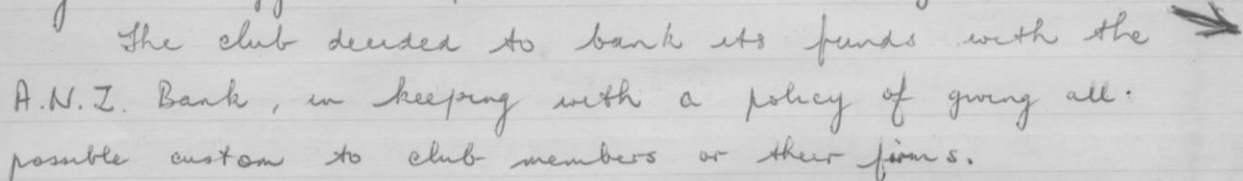 The club decided to bank its funds with the
A.N.Z. Bank, in keeping with a policy of giving all
possible custom to club members or their firms.